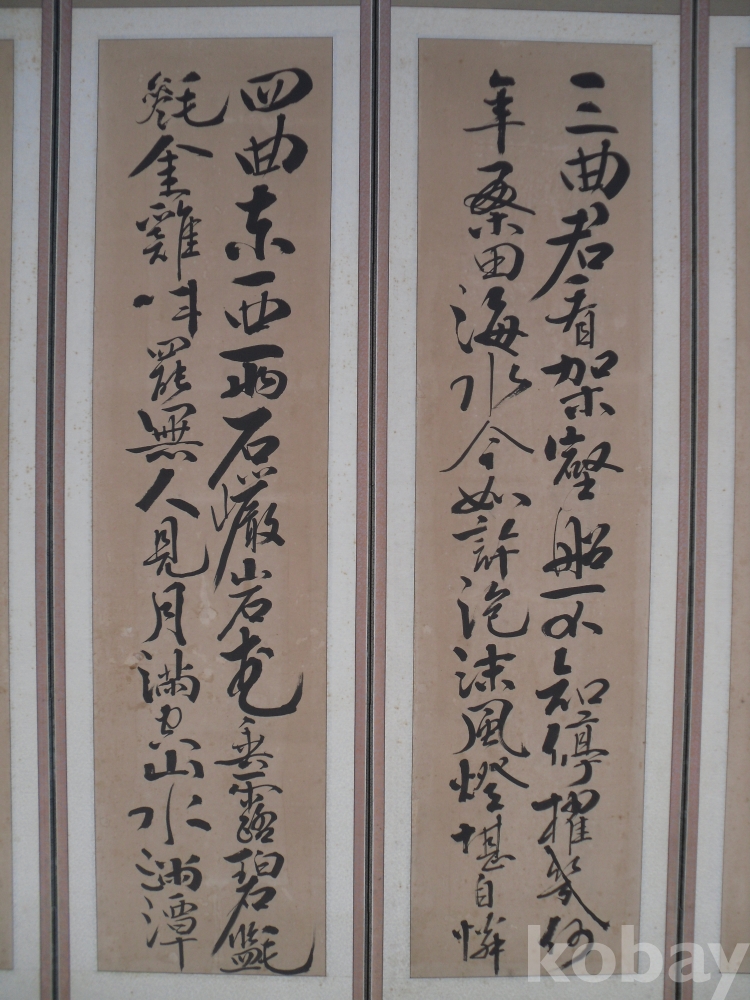 三曲君看架壑船不知停擢幾何
年桑田海水今如許泡沫風燈堪自憐
四曲東西兩石巖岩花垂露碧㲯
毿金雞叫罷無人見月滿空山水滿潭
kobay